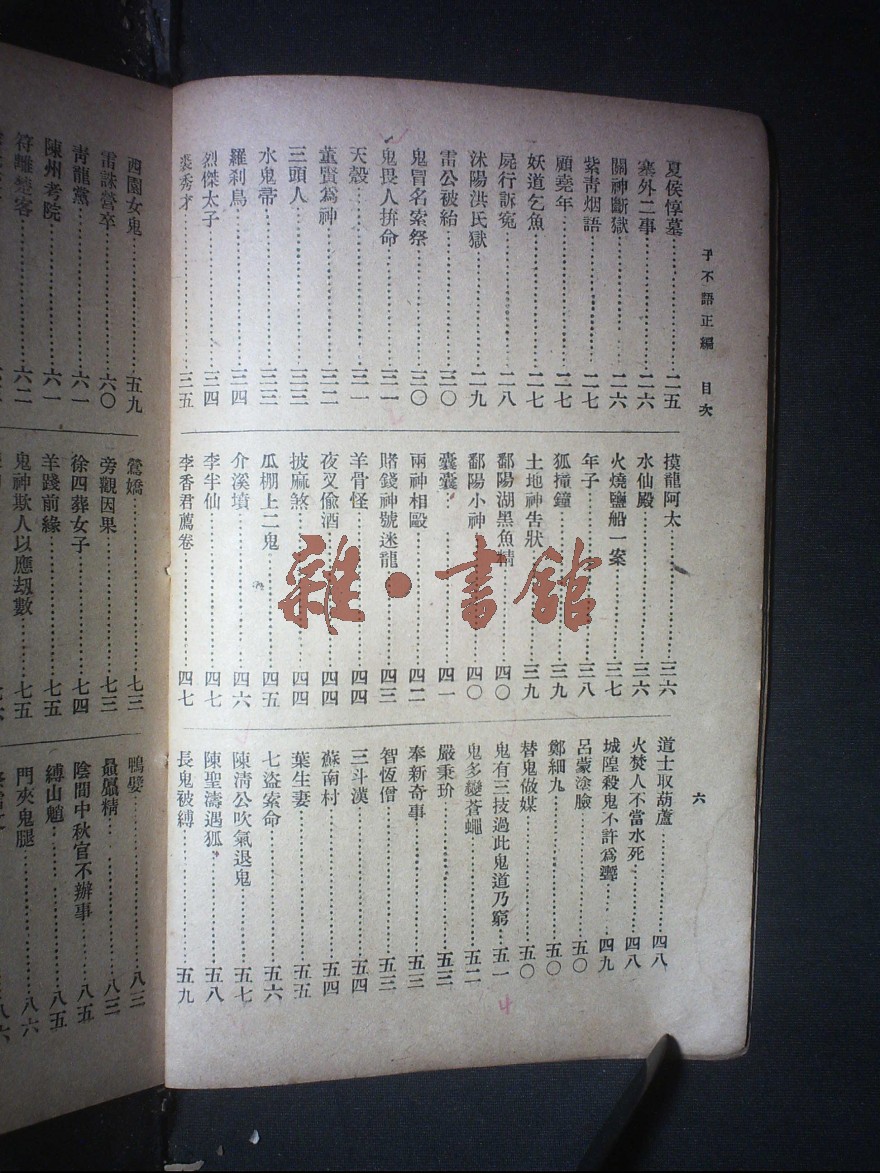 子不語正編　目次
六
夏侯惇墓……二五
塞外二事……二六
關神斷獄……二六
紫青烟語……二七
顧堯年……二七
妖道乞魚……二七
屍行訴寃……二八
沭陽洪氏獄……二九
雷公被紿……三〇
鬼冒名索祭……三〇
鬼畏人拚命……三一
天殼……三一
董賢爲神……三二
三頭人……三三
水鬼帚……三三
羅刹鳥……三四
烈傑太子……三四
裘秀才……三五
摸龍阿太……三六
水仙殿……三六
火燒鹽船一案……三七
年子……三八
狐撞鐘……三九
土地神吿狀……三九
鄱陽湖黑魚精……四〇
鄱陽小神……四〇
囊囊……四一
兩神相毆……四二
賭錢神號迷龍……四三
羊骨怪……四四
夜叉偸酒……四四
披麻煞……四四
瓜棚上二鬼……四五
介溪墳……四六
李半仙……四七
李香君薦卷……四七
道士取葫蘆……四八
火焚人不當水死……四八
城隍殺鬼不許爲聻……四九
呂蒙塗臉……五〇
鄭細九……五〇
替鬼做媒……五〇
鬼有三技過此鬼道乃窮……五一
鬼多變蒼蠅……五二
嚴秉玠……五三
奉新奇事……五三
智恆僧……五三
三斗漢……五四
蘇南村……五四
葉生妻……五五
七盜索命……五六
陳淸公吹氣退鬼……五七
陳聖濤遇狐……五八
長鬼被縛……五九
西園女鬼……五九
雷誅營卒……六〇
靑龍黨……六一
陳州考院……六一
符離楚客……六二
鶯嬌……七三
旁觀因果……七三
徐四葬女子……七四
羊踐前緣……七五
鬼神欺人以應劫數……七五
鴨嬖……八三
贔屭精……八三
陰間中秋官不辦事……八五
縛山魈……八五
門夾鬼腿……八六
八六
4
雜·書館